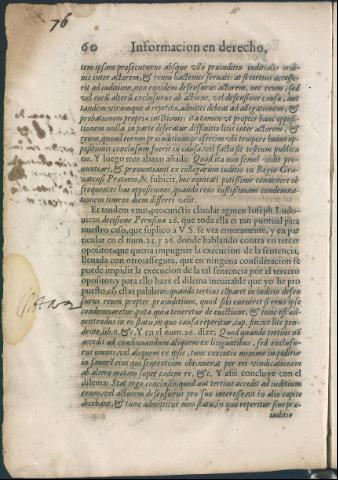 76
60 Informacion en derecho,
tem ipsam prosecuturus absque vllo praeiuditio iuditialis ordi-
nis inter actorem, & reum hactenus seruati: at si tertius accesse-
rit ad iuditium, non equidem defensurus actorem, nec reum, sed
vel eorũ alterũ exclusurus ab actione, vel defensione causa, aut
tandem vtrumque à repetita, admitti debeat ad allegationem, &
probationem proprij iuris: ita tamen vt propter hanc oppositionem
nulla in parte differatur diffinitio litis inter actorem, &
reum, quoad eorum praeiuditium, praesertim vbi tempore huius op-
positionis conclusum fuerit in causa, vel facta sit testium publica-
tio. Y luego mas abaxo añade: Quod ita non semel vidit pro-
nuntiari, & pronuntiaui ex collegarum iuditio in Regio Gra-
natensi Pretorio, & subdit, hoc equitati potissime conuenire ob
frequentes has oppositiones, quando reus iustissimam condemna-
tionem timens diem differri velit.
Et tandem vnus, pro cunctis claudat agmen Ioseph. Ludo-
uicus decisione Perusina 26. que toda ella es tan puntual para
nuestro caso, que suplico a V.S. se vea enteramente, y en par
ticular en el num. 25. y 26. donde hablando contra vn tercer
opositor, que queria impugnar la execucion de la sentencia,
lleuada con otros assegura, que en ninguna consideracion se
puede impidir la execucion de la tal sentencia por el tercero
opositor: y para ello haze el dilema ineuitable que yo he pro
puesto, có estas palabras: quando tertius cõparet in iuditio defen
surus reum propter praeiuditium, quod sibi eueniret si reus ipse
condemnaretur, puta quia teneretur de euictione, & tunc est ad-
mittendus in eo statu, in quo causa reperitur, cap. fin. vt lite pen-
dente, lib. 6. &c. Y en el num. 26. dize: Quod quando tertius nõ
accedit ad coadiuuandum aliquem ex litigantibus, sed exclusu-
rus omnes, vel aliquem ex ipsis, tunc executio minime impeditur
in fauorẽ eius qui sententiam obtinuerat per rei vindicationem
ab altero motam super eadem re, &c. Y assi concluye con el
dilema: Stat ergo conclusio quod aut tertius accedit ad iuditium
reum, vel actorem defensurus pro suo interesse, vt in alio capite
dicebant, & tunc admittitur in eo statu, in quo reperitur sine prae-
iuditio